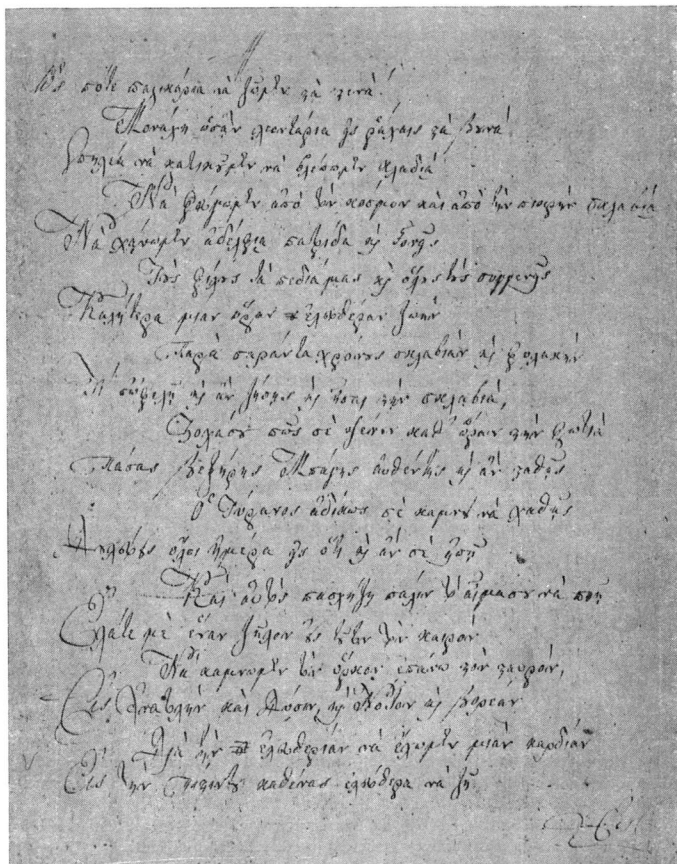 Ὡς πότε παλικάρια νὰ ζοῦμεν τὰ στενά!
Μονάχη ὡσὰν λιοντάρια ῾ς ράχαις τὰ βουνά
Σπηλιὰ νὰ κατικοῦμεν νὰ βλέπωμεν κλαδιά
Νὰ φεύγωμεν ἀπὸ τὸν κόσμον καὶ ἀπὸ τὴν πικρὴν σκλαβιά
Νὰ χάνωμεν ἀδέλφια πατρίδα κ̀ γονεῖς
Τοὺς φίλους τὰ πεδιά μας κ̀ ὅλους τοὺς συγγενεῖς
Καλήτερα μιαν ὥραν ἐλευθέραν ζωὴν
Παρὰ σαράντα χρόνους σκλαβιὰν κ̀ φυλακὴν
Τί σ᾽ ὠφελῆ κ̀ ἂν ζήσης κ̀ ἦσαι τὴν σκλαβιά,
Στοχάσου πῶς σὲ ψένουν καθ᾽ ὥραν τὴν φωτιά
Πασᾶς βεζήρης Μπέγης αὐθέντης κ̀ ἂν
Ὁ Τύρανος ἀδίκως σὲ καμνη νὰ χαθῆς
Δουλεύεις ὅλοι ἡμέρα ῾ς ὅτι κ̀ ἂν σὲ πῆ
Καὶ αὐτὸς πασχήζη πάλην τὸ αἷμα σου νὰ πιῆ
Ἐλᾶτε μὲ ἕναν ζῆλον ῾ς τοῦτον τὸν καιρὸν
Νὰ καμνωμεν τὸν ὅρκον ἐπάνω τὸν σταυρόν,
Εἰς Ἀνατολὴν καὶ Δύσην, κ̀ Νότον κ̀ βορεάν
Διὰ τὴν ἐλευθερίαν νὰ ἔχωμεν μιὰν καρδιάν
Εἰς τὴν καθένας ἐλεύθερα νὰ ζῆ